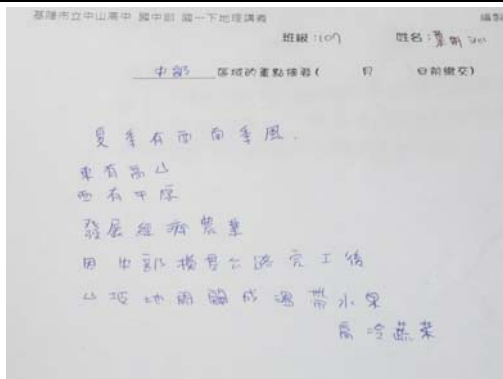 基隆市立中山高中 國中部 國一下地理講義
班級:107 姓名:葉
中部 區域的重點摘要( 月 日前繳交)
夏季有西南季風.
東有高山
西有平原
發展經濟農業
因中部橫貫公路完工後
山坡地開闢成溫帶水果
高冷蔬菜